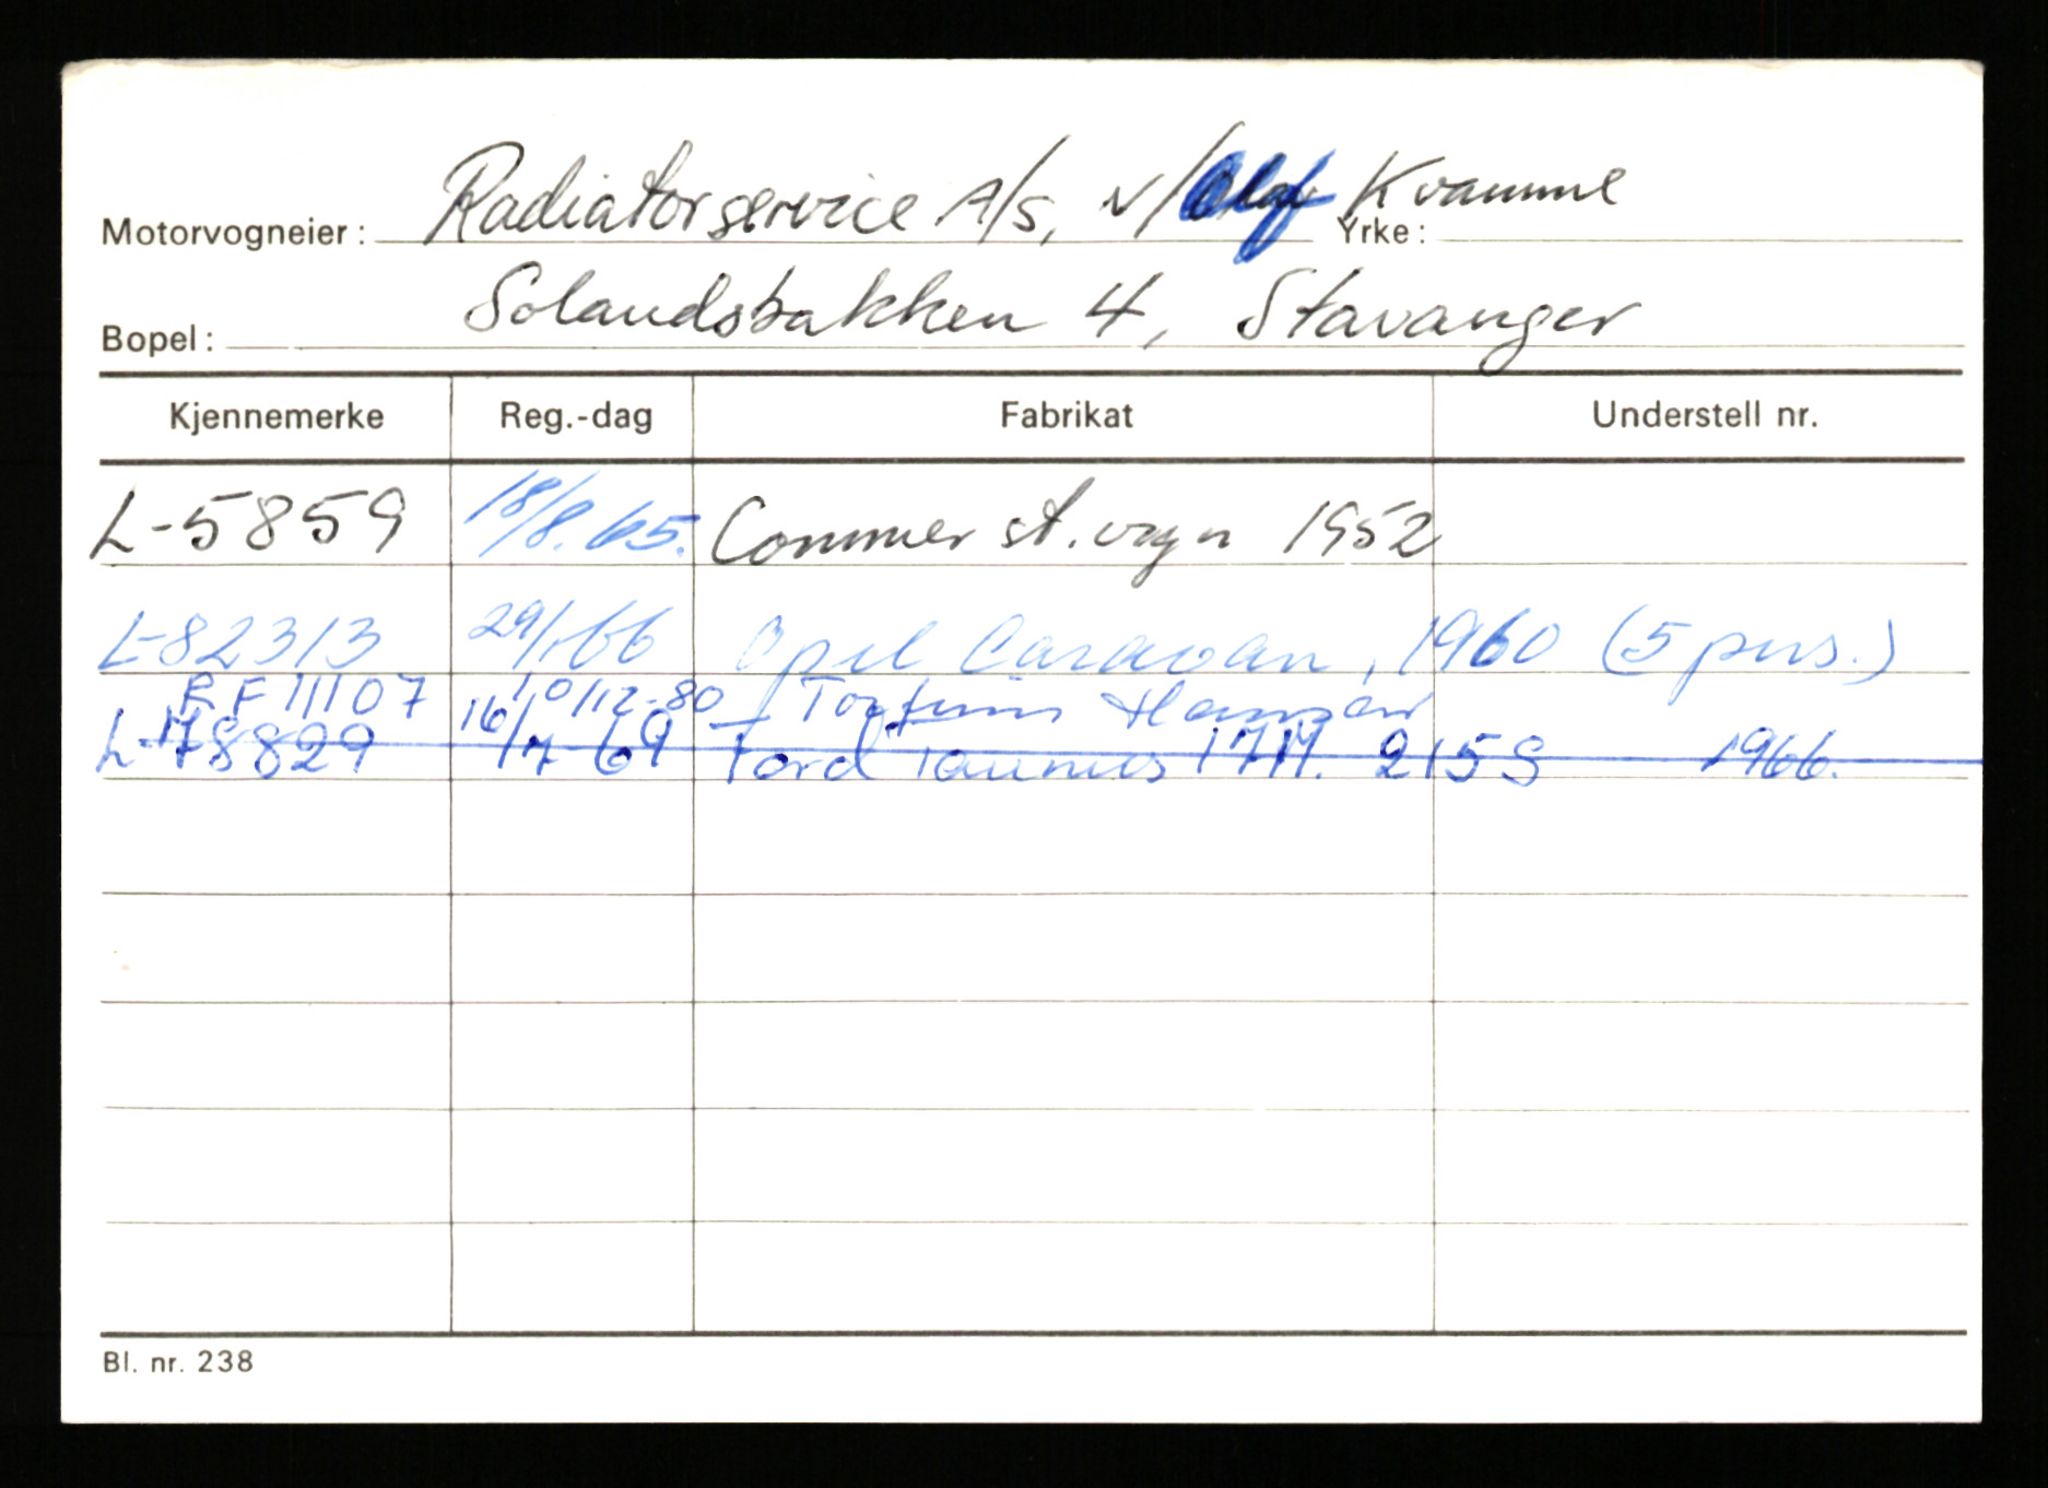 Motorvogneier: Radiatorservice A/S, v/Olaf Kvamme Yrke:
Bopel: Solandsbakken 4, Stavanger
Kjennemerke Reg.-dag Fabrikat Understell nr.
L-5859 18/8.65. Commer st.vogn 1952
L-82313 29/1.66 Opel Caravan, 1960 (5 pers.)
RF11107 10/12-80
L-78829 16/7 69 Ford Taunus 17M. 215S 1966.
Bl. nr. 238